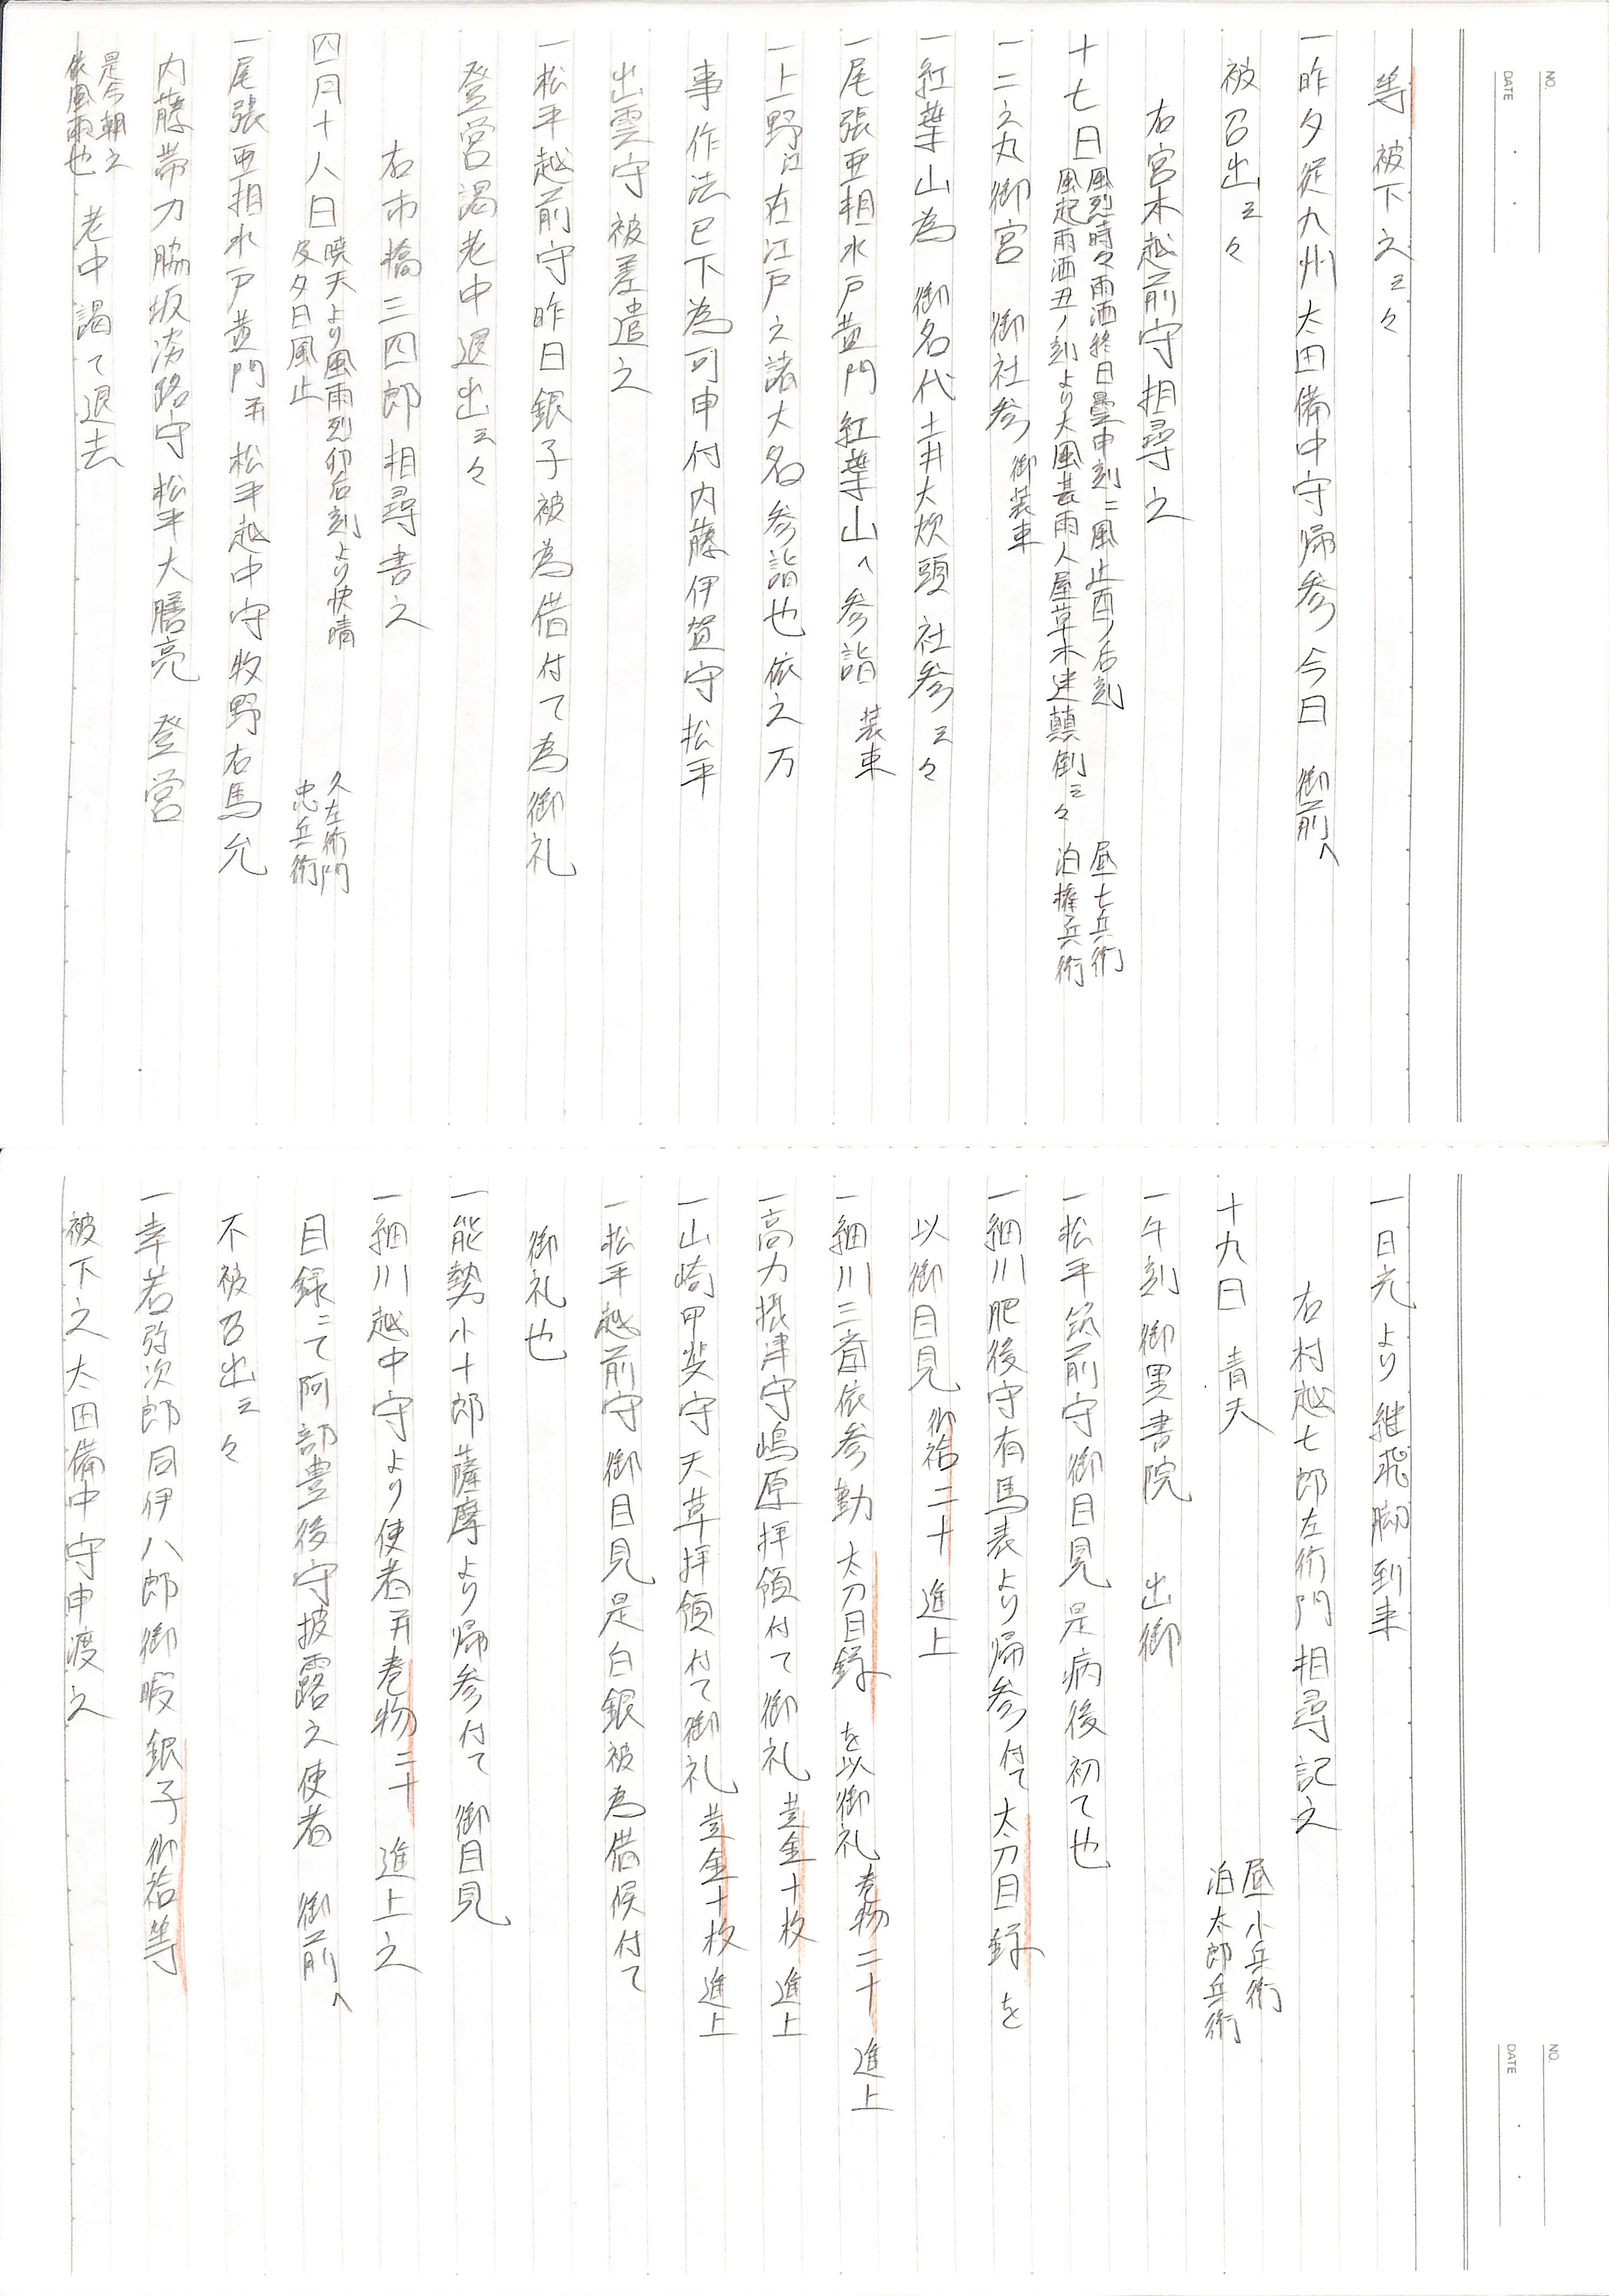 NO.
DATE
等 被下之云々
一昨夕従九州太田備中守帰参今日 御前へ
被召出云々
右宮木越前守相尋之
十七日 風烈時々雨洒終日曇申刻ニ風止酉ノ后刻
風起雨洒丑ノ刻より大風甚雨人屋草木迷顛倒云々
昼 七兵衛
泊 権兵衛
一二之丸御宮 御社参 御装束
一紅葉山為 御名代土井大炊頭社参云々
一尾張亜相水戸黄門紅葉山へ参詣 装束
一上野江在江戸之諸大名参詣也依之万
事作法已下為可申付内藤伊賀守松平
出雲守被差遣之
一松平越前守昨日銀子被為借付て為御礼
登営謁老中退出云々
右市橋三四郎相尋書之
四月十八日 暁天より風雨烈卯后刻より快晴
及夕日風止
久左衛門
忠兵衛
一尾張亜相水戸黄門并松平越中守牧野右馬允
内藤帯刀脇坂淡路守松平大膳亮 登営
是今朝之
依風雨也
老中謁て退去
NO.
DATE
一日光より継飛脚到来
右村越七郎左衛門相尋記之
十九日 青天
昼 小兵衛
泊 太郎兵衛
一午刻御黒書院 出御
一松平筑前守御目見是病後初て也
一細川肥後守有馬表より帰参付て太刀目録を
以御目見 御袷二十 進上
一細川三斎依参勤太刀目録 を以御礼 巻物二十 進上
一高力摂津守嶋原拝領付て御礼 黄金十枚 進上
一山崎甲斐守天草拝領付て御礼 黄金十枚 進上
一松平越前守御目見是白銀被為借候付て
御礼也
一能勢小十郎薩摩より帰参付て 御目見
一細川越中守より使者并巻物二十 進上之
目録ニて阿部豊後守披露之使者 御前へ
不被召出云々
一幸若弥次郎同伊八郎御暇銀子御袷等
被下之太田備中守申渡之